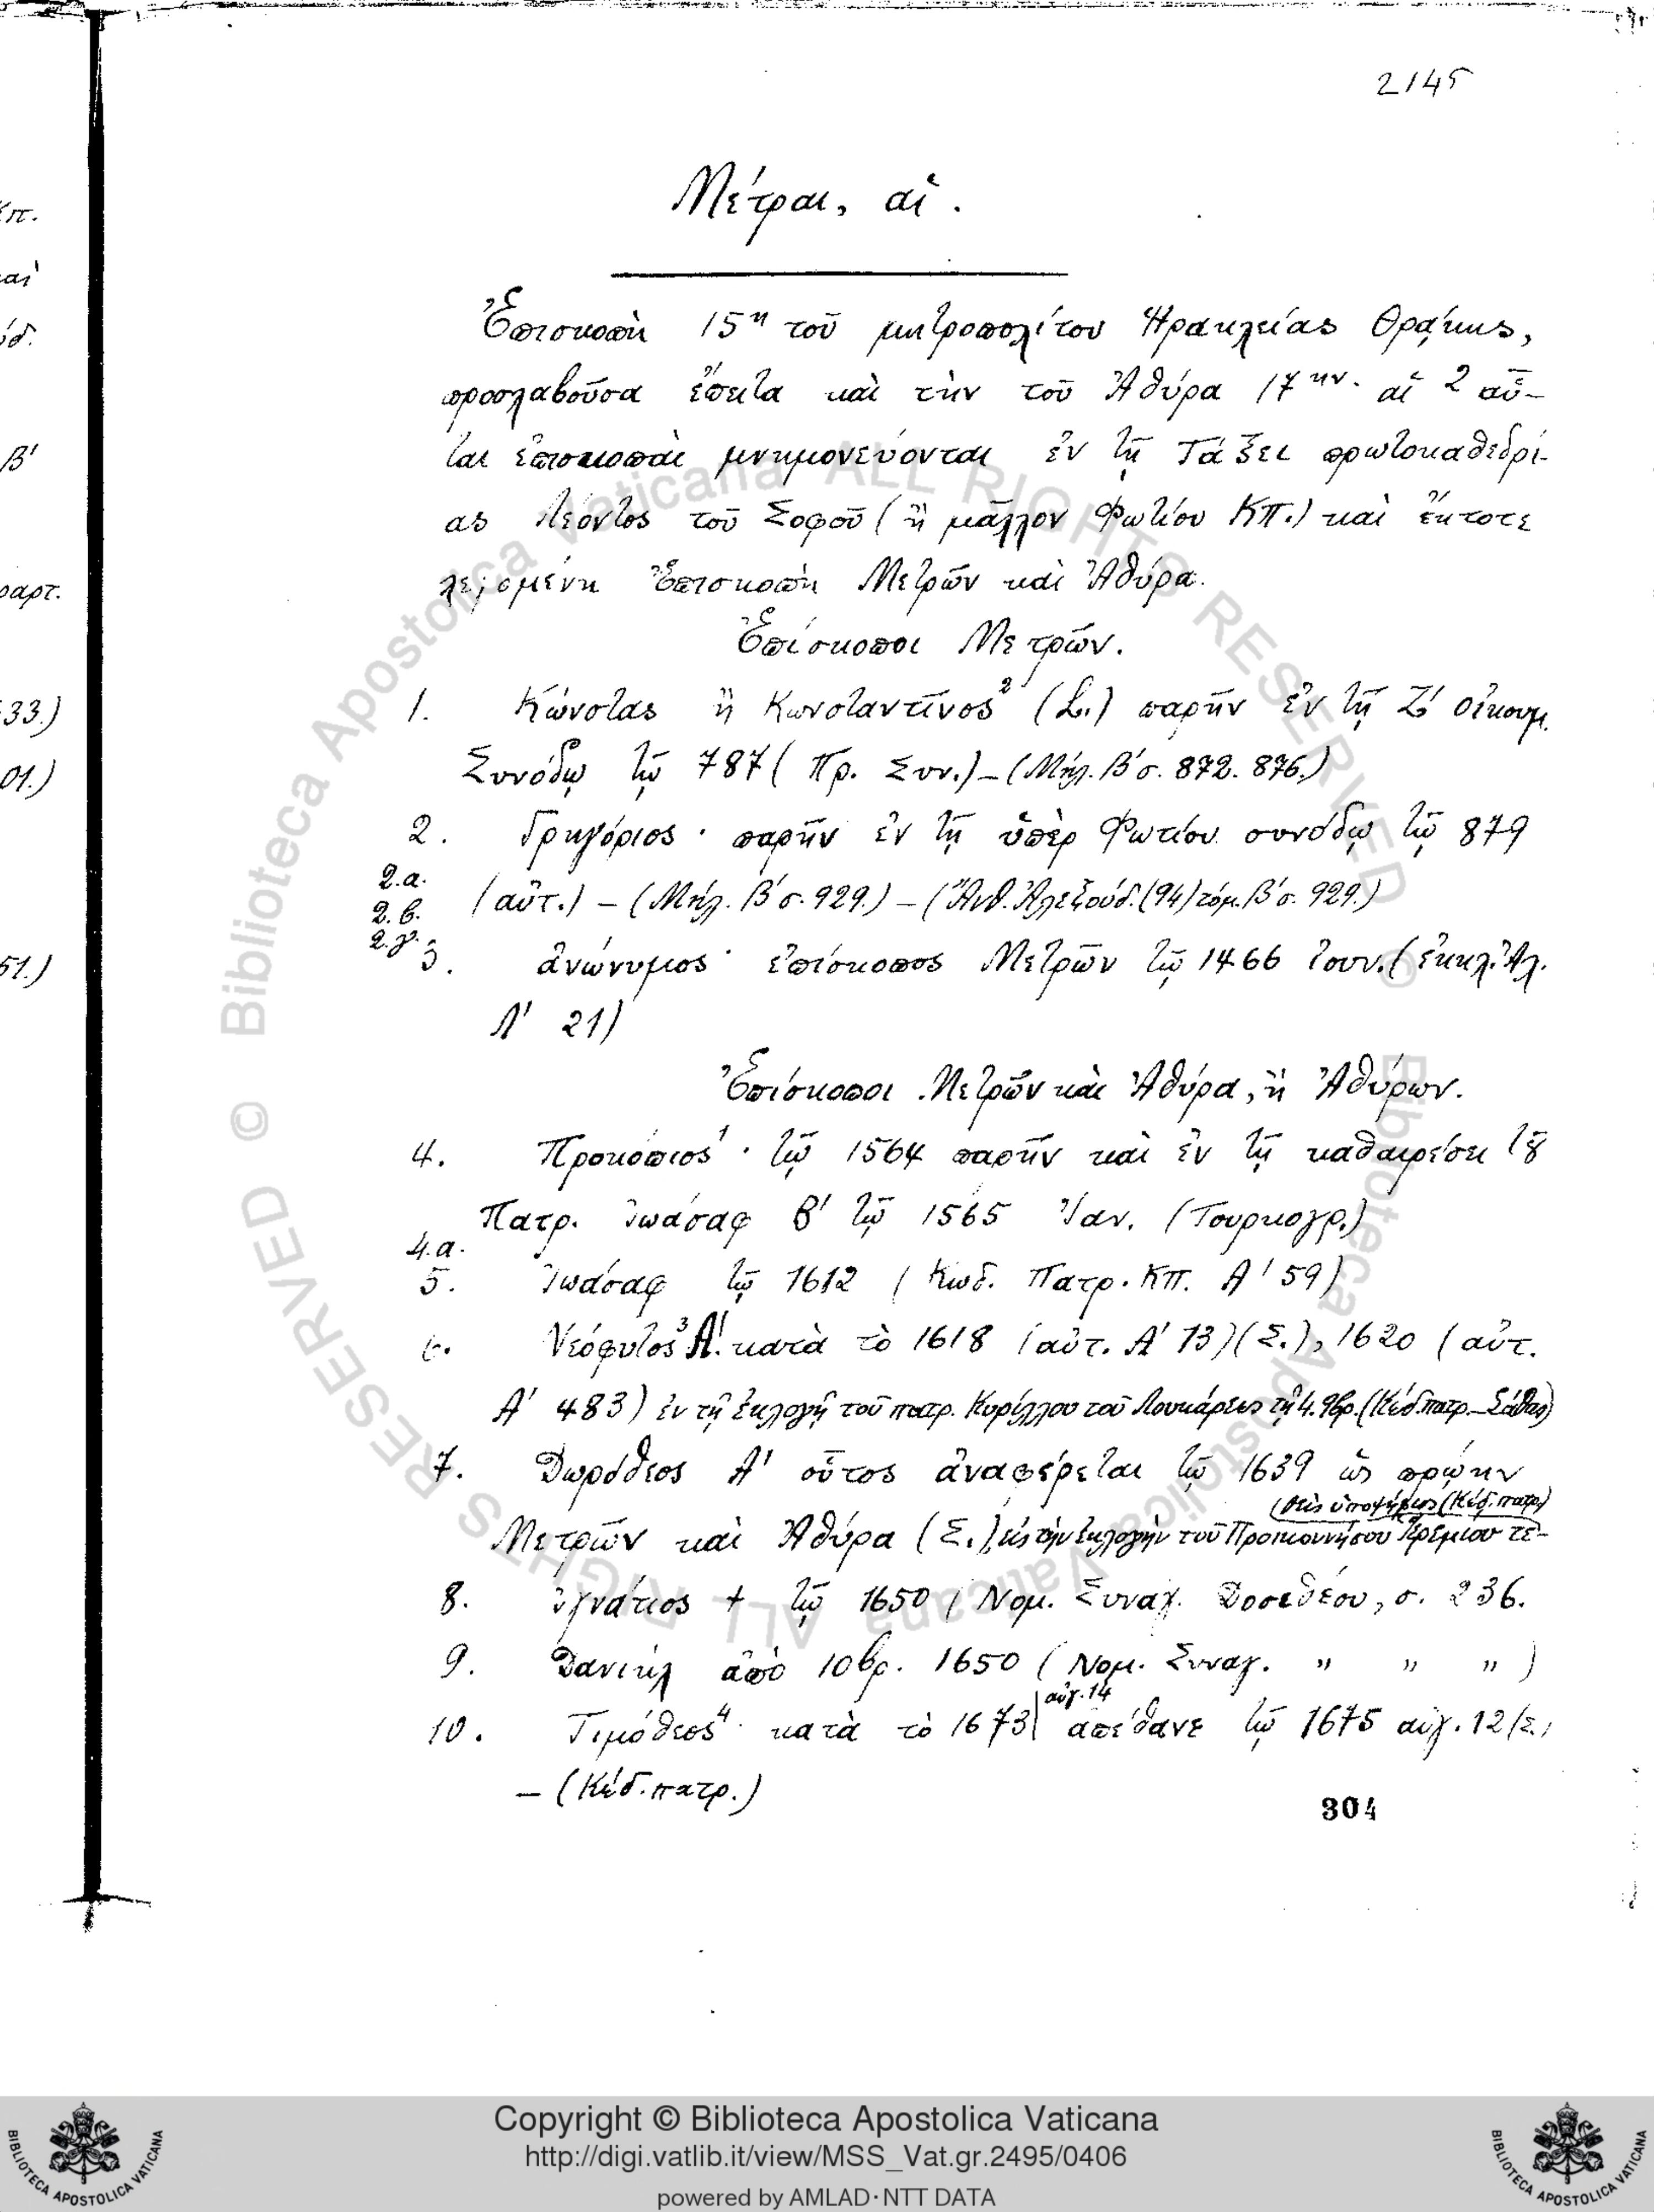 2145
Μέτραι, αἱ.
Ἐπισκοπὴ 15η τοῦ μητροπολίτου Ἡρακλείας Θρᾴκης,
προσλαβοῦσα ἔπειτα καὶ τὴν τοῦ Ἀθύρα 17ην. αἱ 2 αὗ-
ται ἐπισκοπαὶ μνημονεύονται ἐν τῇ Τάξει πρωτοκαθεδρί-
ας Λέοντος τοῦ Σοφοῦ (ἢ μᾶλλον Φωτίου ΚΠ.) καὶ ἔκτοτε
λεγομένη Ἐπισκοπὴ Μετρῶν καὶ Ἀθύρα.
Ἐπίσκοποι Μετρῶν.
1. Κώνστας ἢ Κωνσταντῖνος2 (L.) παρῆν ἐν τῇ Ζ' Οἰκουμ.
Συνόδῳ τῷ 787 (Πρ. Συν.) – (Μήλ. Β' σ. 872. 876.)
2. Γρηγόριος · παρῆν ἐν τῇ ὑπὲρ Φωτίου συνόδῳ τῷ 879
2.α.
2.β. (αὖτ.) – (Μήλ. Β' σ. 929.) – (Ἄνθ. Ἀλεξούδ. (94) τόμ. Β' σ. 929.)
2.γ.
3. ἀνώνυμος · ἐπίσκοπος Μετρῶν τῷ 1466 Ἰουν. (ἐκκλ. Ἀλ.
Λ' 21)
Ἐπίσκοποι Μετρῶν καὶ Ἀθύρα, ἢ Ἀθύρων.
4. Προκόπιος1 · τῷ 1564 παρῆν καὶ ἐν τῇ καθαιρέσει τȣ͂
Πατρ. Ἰωάσαφ Β' τῷ 1565 Ἰαν. (Τουρκογρ.)
4.α.
5. Ἰωάσαφ τῷ 1612 (Κωδ. Πατρ. ΚΠ. Α' 59)
6. Νεόφυτος3 Α'. κατὰ τὸ 1618 (αὐτ. Α' 13) (Σ.), 1620 (αὐτ.
Α' 483) ἐν τῇ ἐκλογῇ τοῦ πατρ. Κυρίλλου τοῦ Λουκάρεως τῇ 4. 9βρ. (Κώδ. πατρ. – Σάθας)
7. Δωρόθεος Α' οὗτος ἀναφέρεται τῷ 1639 ὡς πρῴην
(θεὶς ὑποψήφιος (Κώδ. πατρ.)
Μετρῶν καὶ Ἀθύρα (Σ.), εἰς τὴν ἐκλογὴν τοῦ Προικοννήσου Ἱερεμίου τε-
8. Ἰγνάτιος + τῷ 1650 (Νομ. Συναγ. Δοσιθέου, σ. 236.
9. Δανιὴλ ἀπὸ 10βρ. 1650 (Νομ. Συναγ. " " ")
αὐγ. 14
10. Τιμόθεος4 · κατὰ τὸ 1673| ἀπέθανε τῷ 1675 αὐγ. 12 (Σ.)
– (Κώδ. πατρ.)
304
Κπ.
αὶ
όδ.
Β'
ραρτ.
33.)
01.)
51.)
© Biblioteca Apostolica Vaticana ALL RIGHTS RESERVED
© Biblioteca Apostolica Vaticana ALL RIGHTS RESERVED
Copyright © Biblioteca Apostolica Vaticana
http://digi.vatlib.it/view/MSS_Vat.gr.2495/0406
powered by AMLAD·NTT DATA
BIBLIOTECA APOSTOLICA VATICANA
BIBLIOTECA APOSTOLICA VATICANA